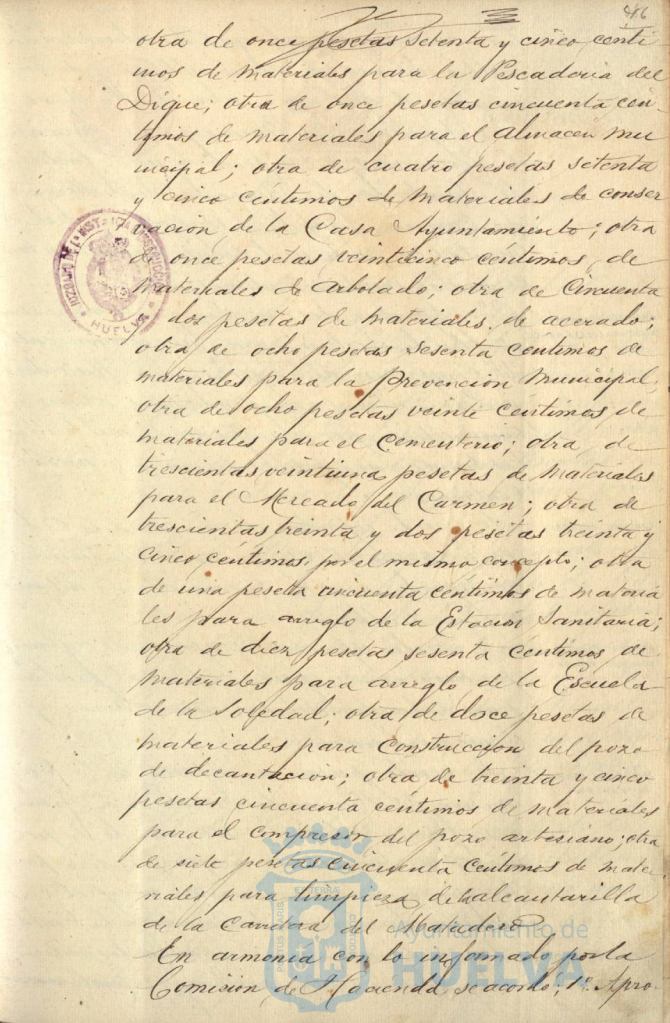 46
otra de once pesetas setenta y cinco centi
mos de materiales para la Pescaderia del
Dique; otra de once pesetas cincuenta cen-
timos de materiales para el almacen mu
nicipal; otra de cuatro pesetas setenta
y cinco centimos de materiales de conser
vacion de la Casa Ayuntamiento; otra
de once pesetas veinticinco centimos de
materiales de arbolado; otra de Cincuenta
dos pesetas de materiales de acerado;
otra de ocho pesetas sesenta centimos de
materiales para la Prevencion Municipal,
otra de ocho pesetas veinte centimos de
materiales para el Cementerio; otra de
trescientas veintiuna pesetas de materiales
para el Mercado del Carmen; otra de
trescientas treinta y dos pesetas treinta y
cinco centimos por el mismo concepto; otra
de una peseta cincuenta centimos de materia
les para arreglo de la Estacion Sanitaria;
otra de diez pesetas sesenta centimos de
materiales para arreglo de la Escuela
de la Soledad; otra de doce pesetas de
materiales para construccion del pozo
de decantacion; otra de treinta y cinco
pesetas cincuenta centimos de materiales
para el compresor del pozo artesiano; otra
de siete pesetas cincuenta centimos de mate
riales para limpieza de la alcantarilla
de la Carretera del Matadero
En armonia con lo informado por la
Comision de Hacienda se acordó; 1º Apro-
HUELVA
Ayuntamiento de
HUELVA